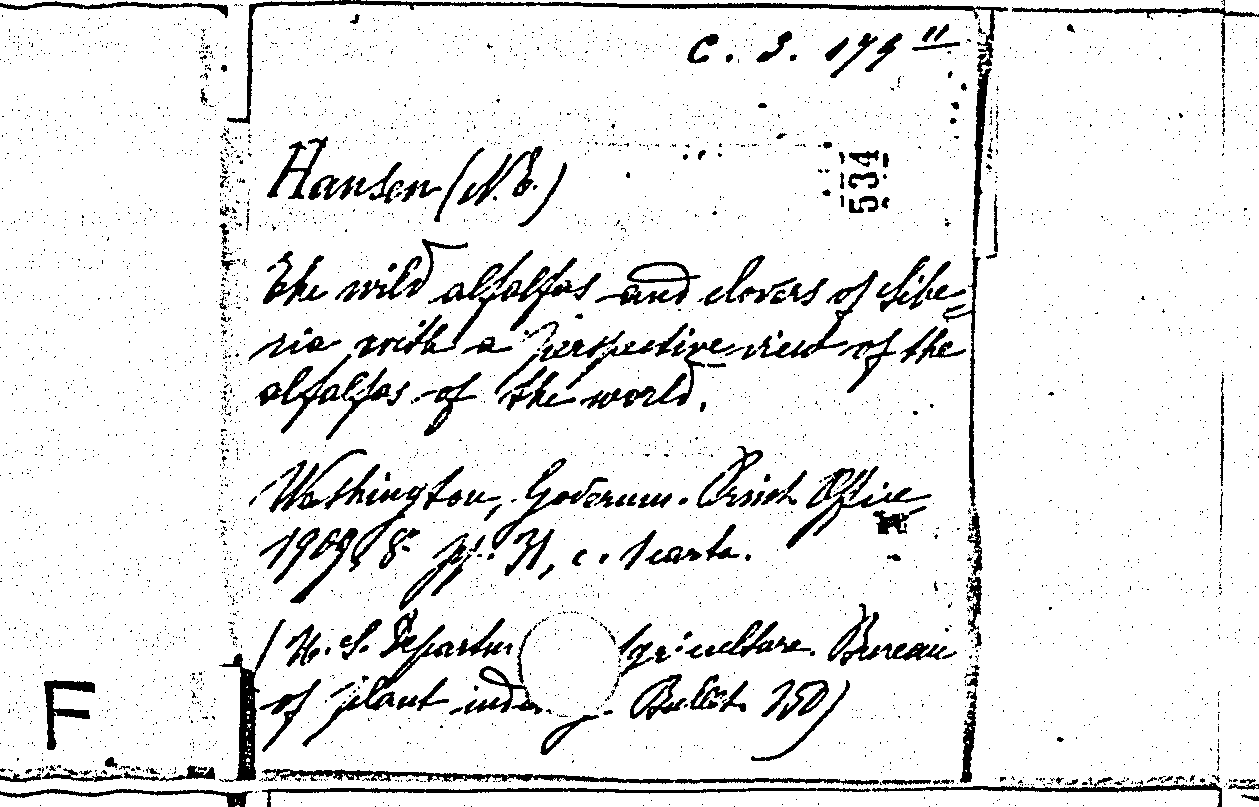 C. S. 179"
534
Hansen (N. E.)
The wild alfalfas and clovers of Sibe=
ria with a perspective view of the
alfalfas of the world.
Washington, Governm. Print. Office
1909, 8° pp. 31, c. 1 carta.
(U. S. Departm griculture. Bureau
of plant indu Bullet. 150)
F